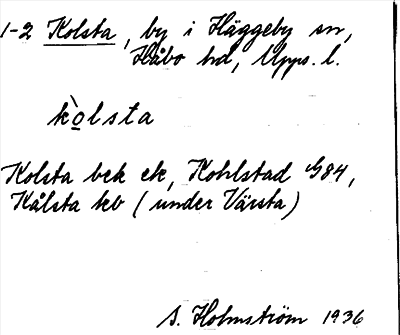 1-2 Kolsta, by i Häggeby sn,
Håbo hd, Upps. l.
kòlsta
Kolsta bek ek, Kohlstad G84,
Kålsta kb (under Värsta)
S. Holmström 1936